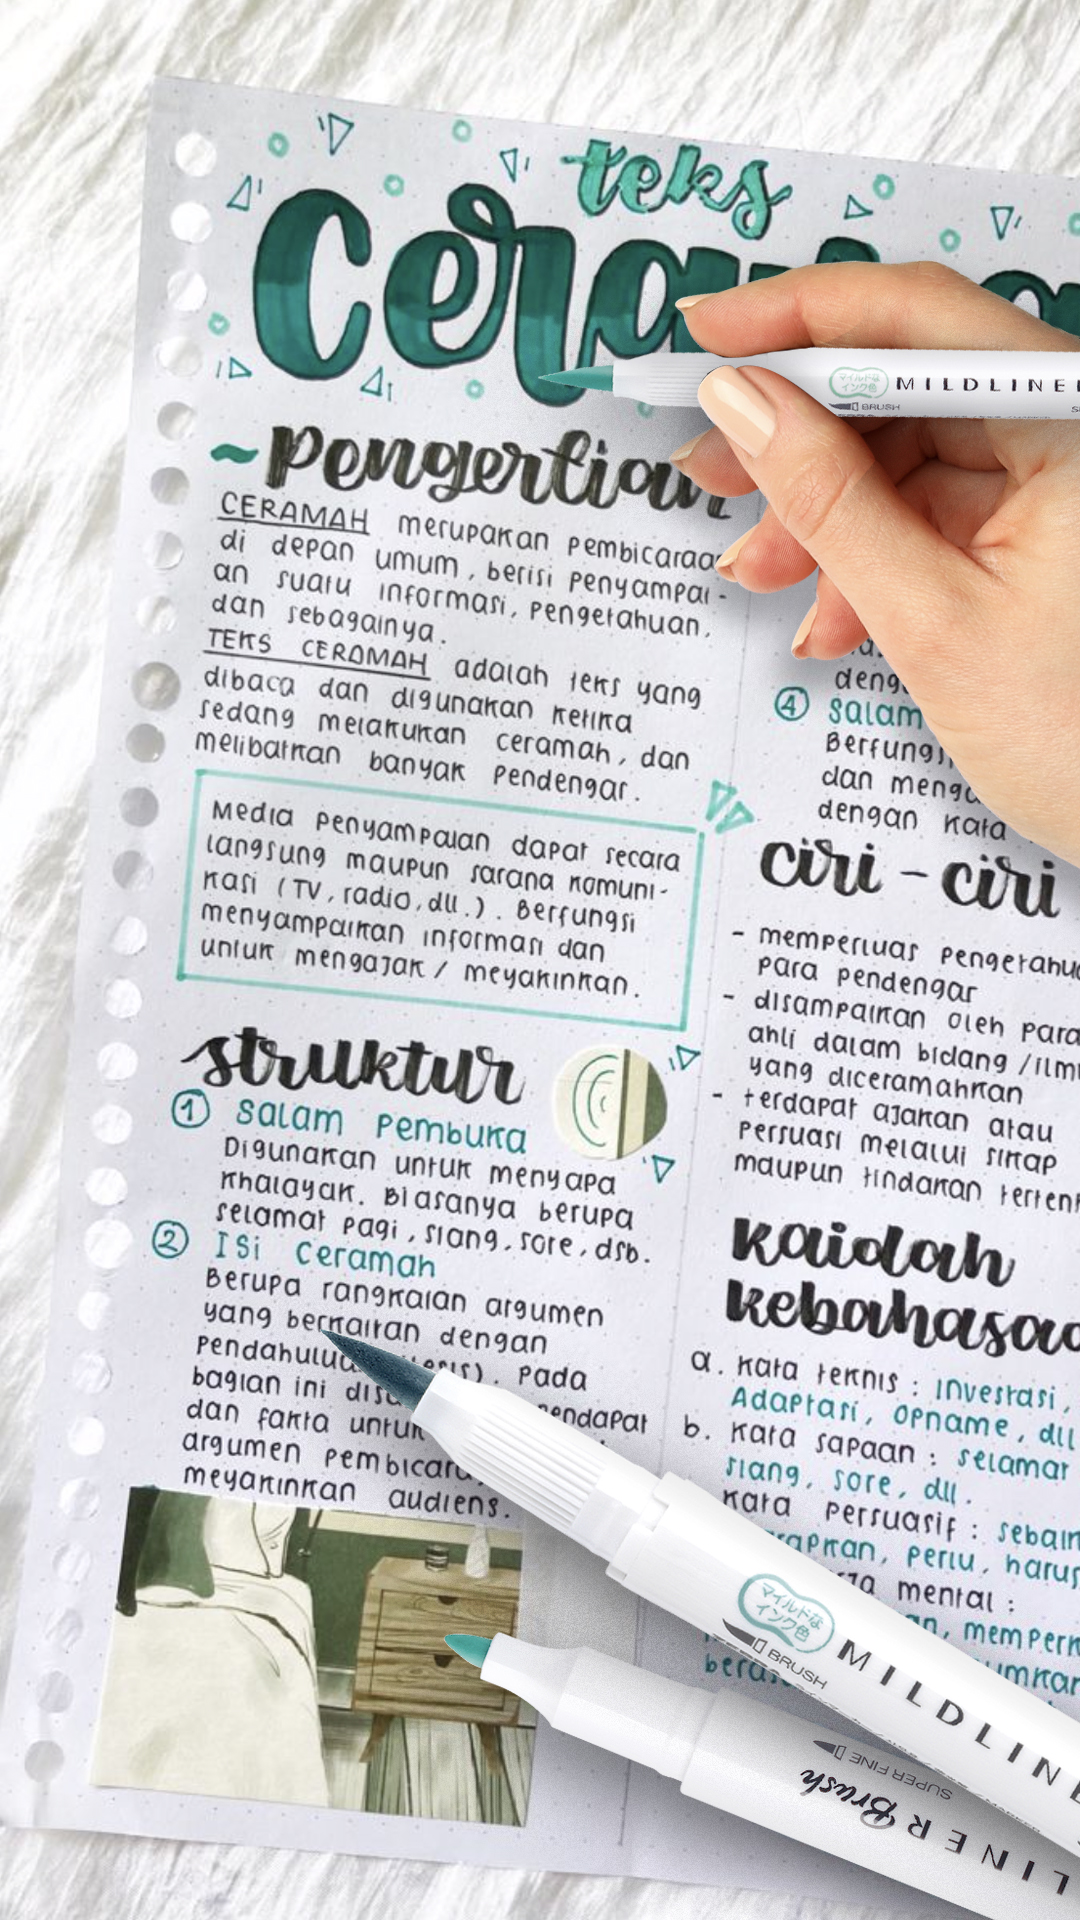 teks
~pengertian
CERAMAH merupakan pembicaraan
di depan umum, berisi penyampai-
an suatu informasi, pengetahuan,
dan sebagainya.
TEKS CERAMAH adalah teks yang
dibaca dan digunakan ketika
sedang melakukan ceramah, dan
melibatkan banyak pendengar.
Media penyampaian dapat secara
langsung maupun sarana komuni-
kasi (TV, radio, dll.). Berfungsi
menyampaikan informasi dan
untuk mengajak / meyakinkan.
struktur
1 Salam Pembuka
Digunakan untuk menyapa
khalayak. Biasanya berupa
selamat pagi, siang, sore, dsb.
2 ISi Ceramah
Berupa rangkaian argumen
yang berkaitan dengan
Pendahulua sis). Pada
bagian ini dis
pendapat
dan fakta untuk
argumen pembicara
meyakinkan audiens.
deng
4 Salam
Berfungsi
dan menga
dengan kata
ciri - ciri
- memperluas pengetahu
para pendengar
- disampaikan oleh para
ahli dalam bidang /ilm
yang diceramahkan
- terdapat ajakan atau
persuasi melalui sikap
maupun tindakan terten
kaidah
kebahasaa
a. kata teknis : Investasi,
Adaptasi, opname, dll
b. kata sapaan : selamat
siang, sore, dll.
kata persuasif : sebain
rapkan, perlu, harus
rja mental :
an, memperk
umkan
MILDLINER
マイルドな
インク色
BRUSH
マイルドな
インク色
BRUSH
MILDLINE
SUPER FINE
Brush
LINER